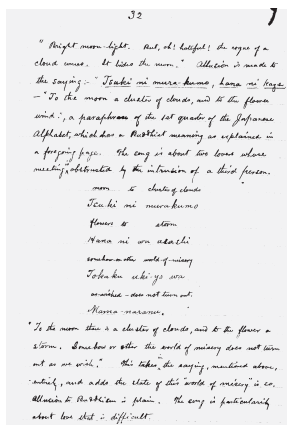 32
"Bright moon-light. But, oh! hateful! the rogue of a
cloud comes. It hides the moon." Allusion is made to
the saying:- "Tsuki ni mura-kumo, hana ni kaze
- "To the moon a cluster of clouds, and to the flower
wind", a paraphrase of the 1st quarter of the Japanese
Alphabet, which has a Buddhist meaning as explained in
a foregoing page. The song is about two lovers whose
meeting is obstructed by the intrusion of a third person.
moon to cluster of clouds
Tsuki ni murakumo
flowers to storm
Hana ni wa arashi
somehow or other world-of-misery
Tokaku uki-yo wa
as-wished - does not turn out.
Mama-naranu.
"To the moon there is a cluster of clouds, and to the flower a
storm. Somehow or other the world of misery does not turn
out as we wish." This takes the saying, mentioned above,
entirely, and adds the state of this "world of misery" is so.
Allusion to Buddhism is plain. The song is particularly
about love that is difficult.